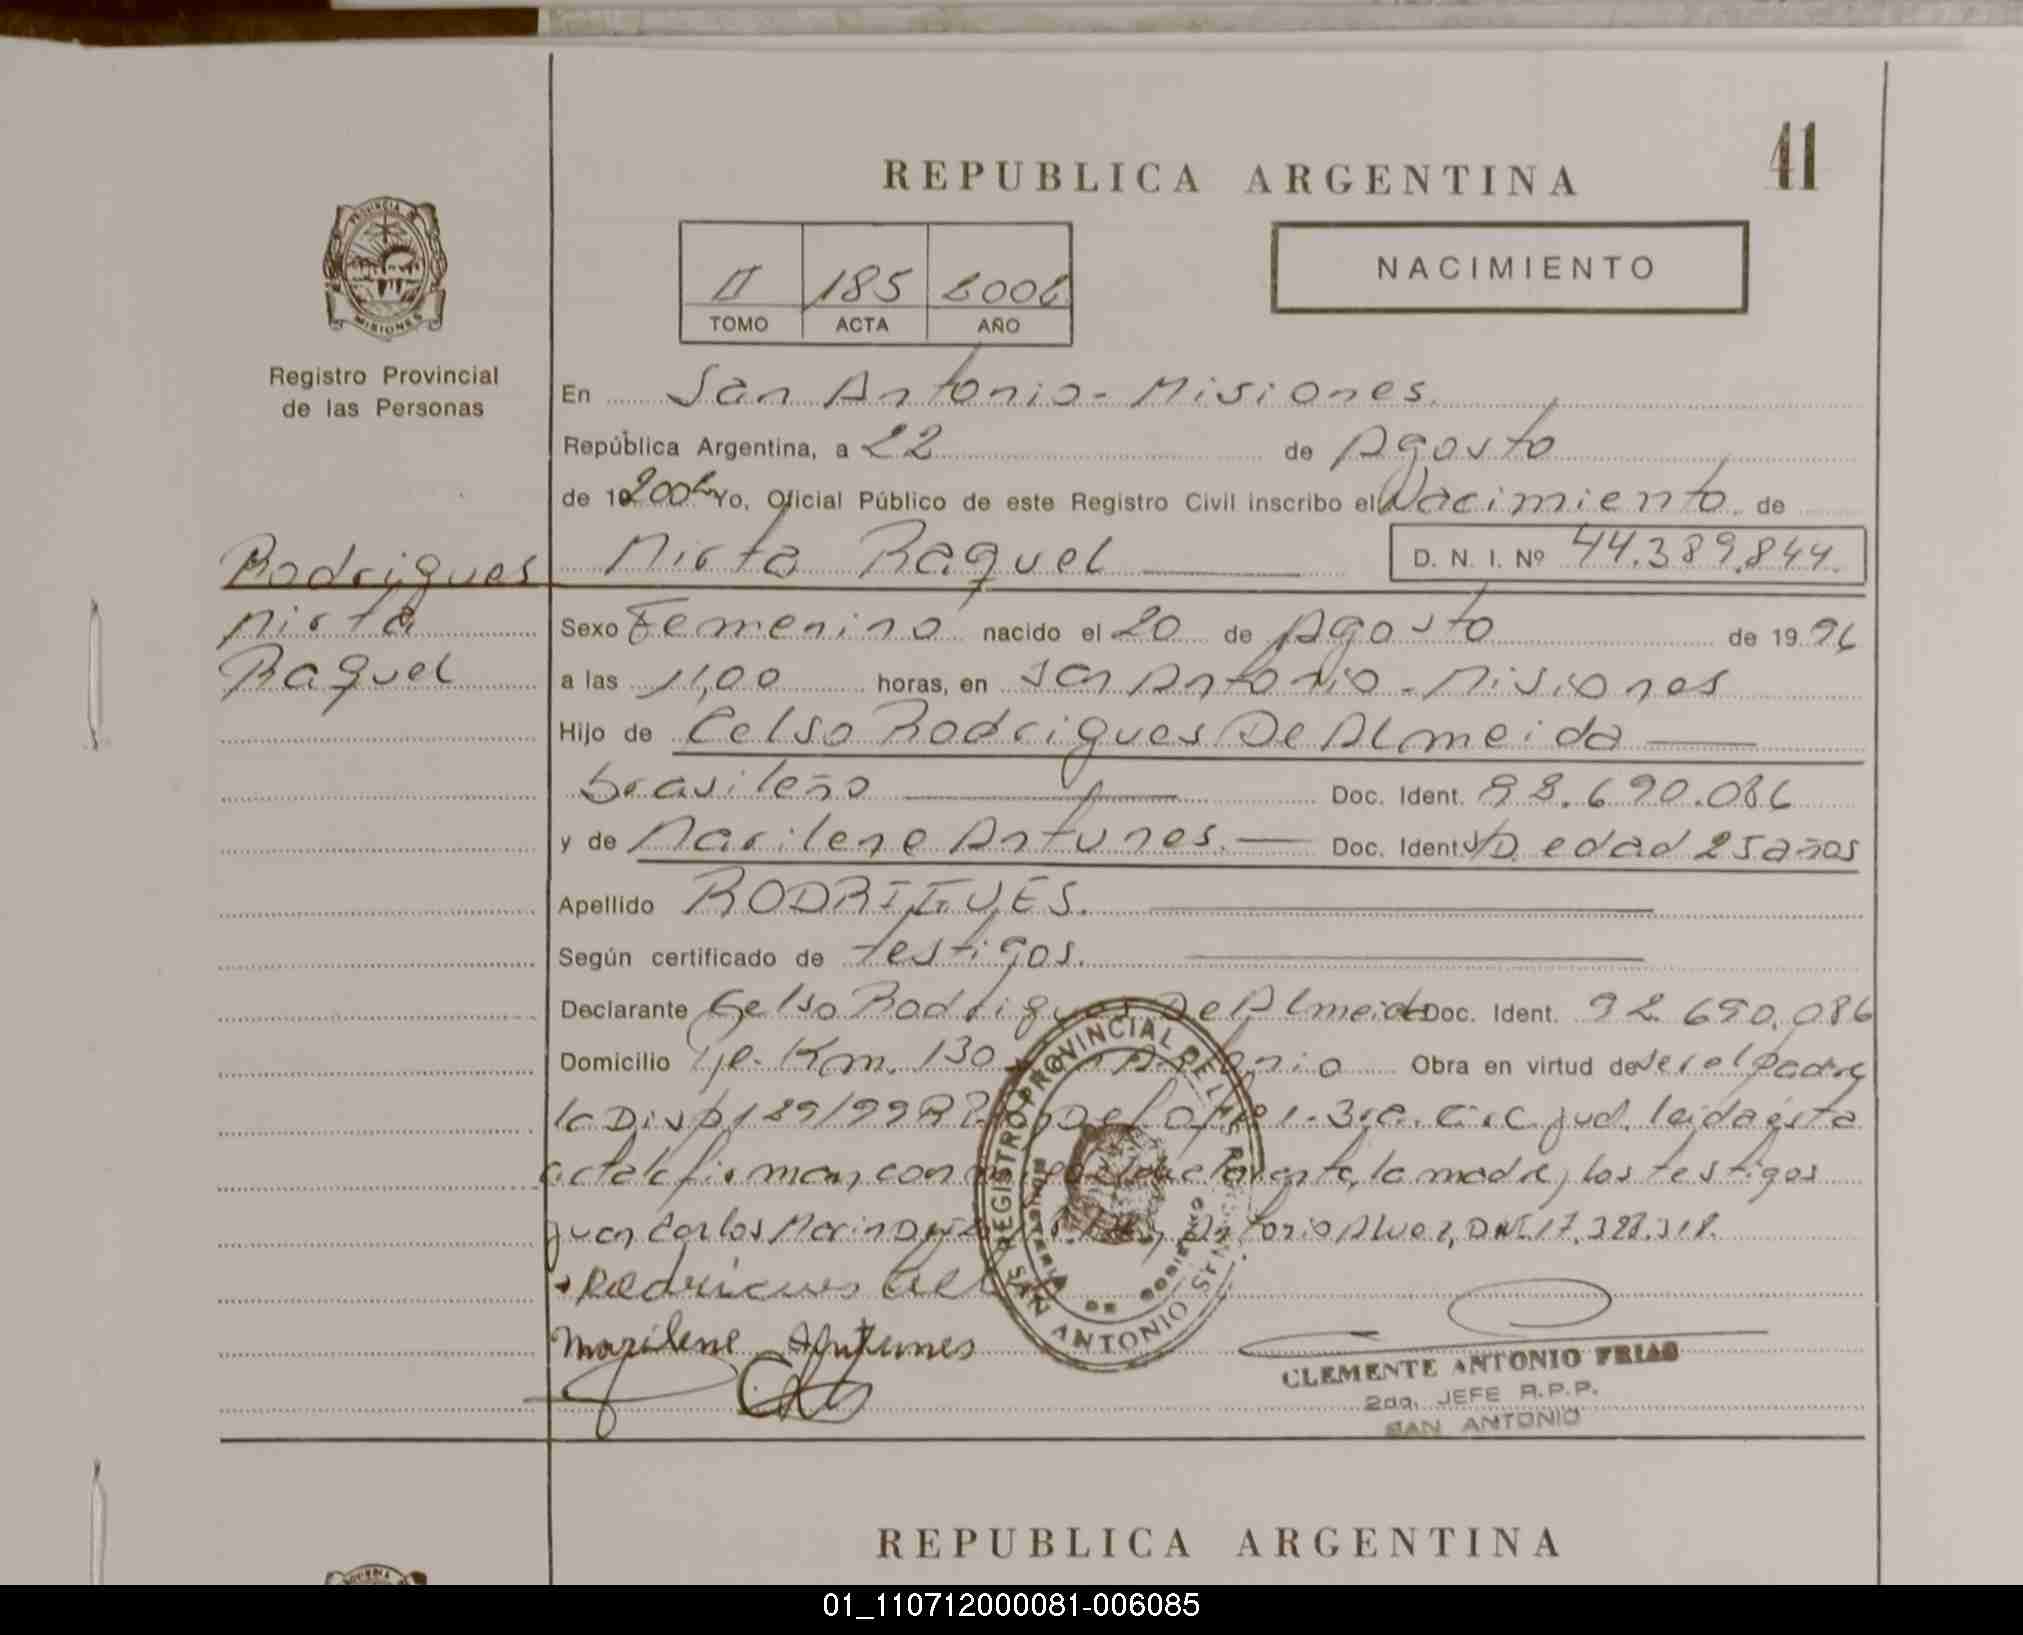 41
REPUBLICA ARGENTINA
PROVINCIA DE
MISIONES
Registro Provincial
de las Personas
II 185 2002
TOMO ACTA AÑO
NACIMIENTO
En San Antonio - Misiones.
República Argentina, a 22 de Agosto
de 19 2002 Yo, Oficial Público de este Registro Civil inscribo el Nacimiento de
Rodrigues Mirta Raquel D. N. I. Nº 44.389.844.
Mirta
Raquel
Sexo Femenino nacido el 20 de Agosto de 1996
a las 11,00 horas, en San Antonio - Misiones
Hijo de Celso Rodrigues De Almeida
brasileño Doc. Ident. 92.690.086
y de Marilene Antunes. Doc. Ident. S/D edad 25 años
Apellido RODRIGUES.
Según certificado de testigos.
Declarante Celso Rodrigues De Almeida Doc. Ident. 92.690.086
Domicilio Km. 130 San Antonio Obra en virtud de ser el padre
la Disp. 189/99 1-3ra. Circ. jud. leida ésta
acta la firman, con el declarante, la madre, los testigos
Juan Carlos Marin Antonio Alvez, DNI 17.328.318.
Rodrigues Cel
Marilene Antunes
REGISTRO PROVINCIAL DE LAS PERSONAS
SAN ANTONIO
CLEMENTE ANTONIO FRIAS
2do. JEFE R.P.P.
SAN ANTONIO
REPUBLICA ARGENTINA
01_110712000081-006085